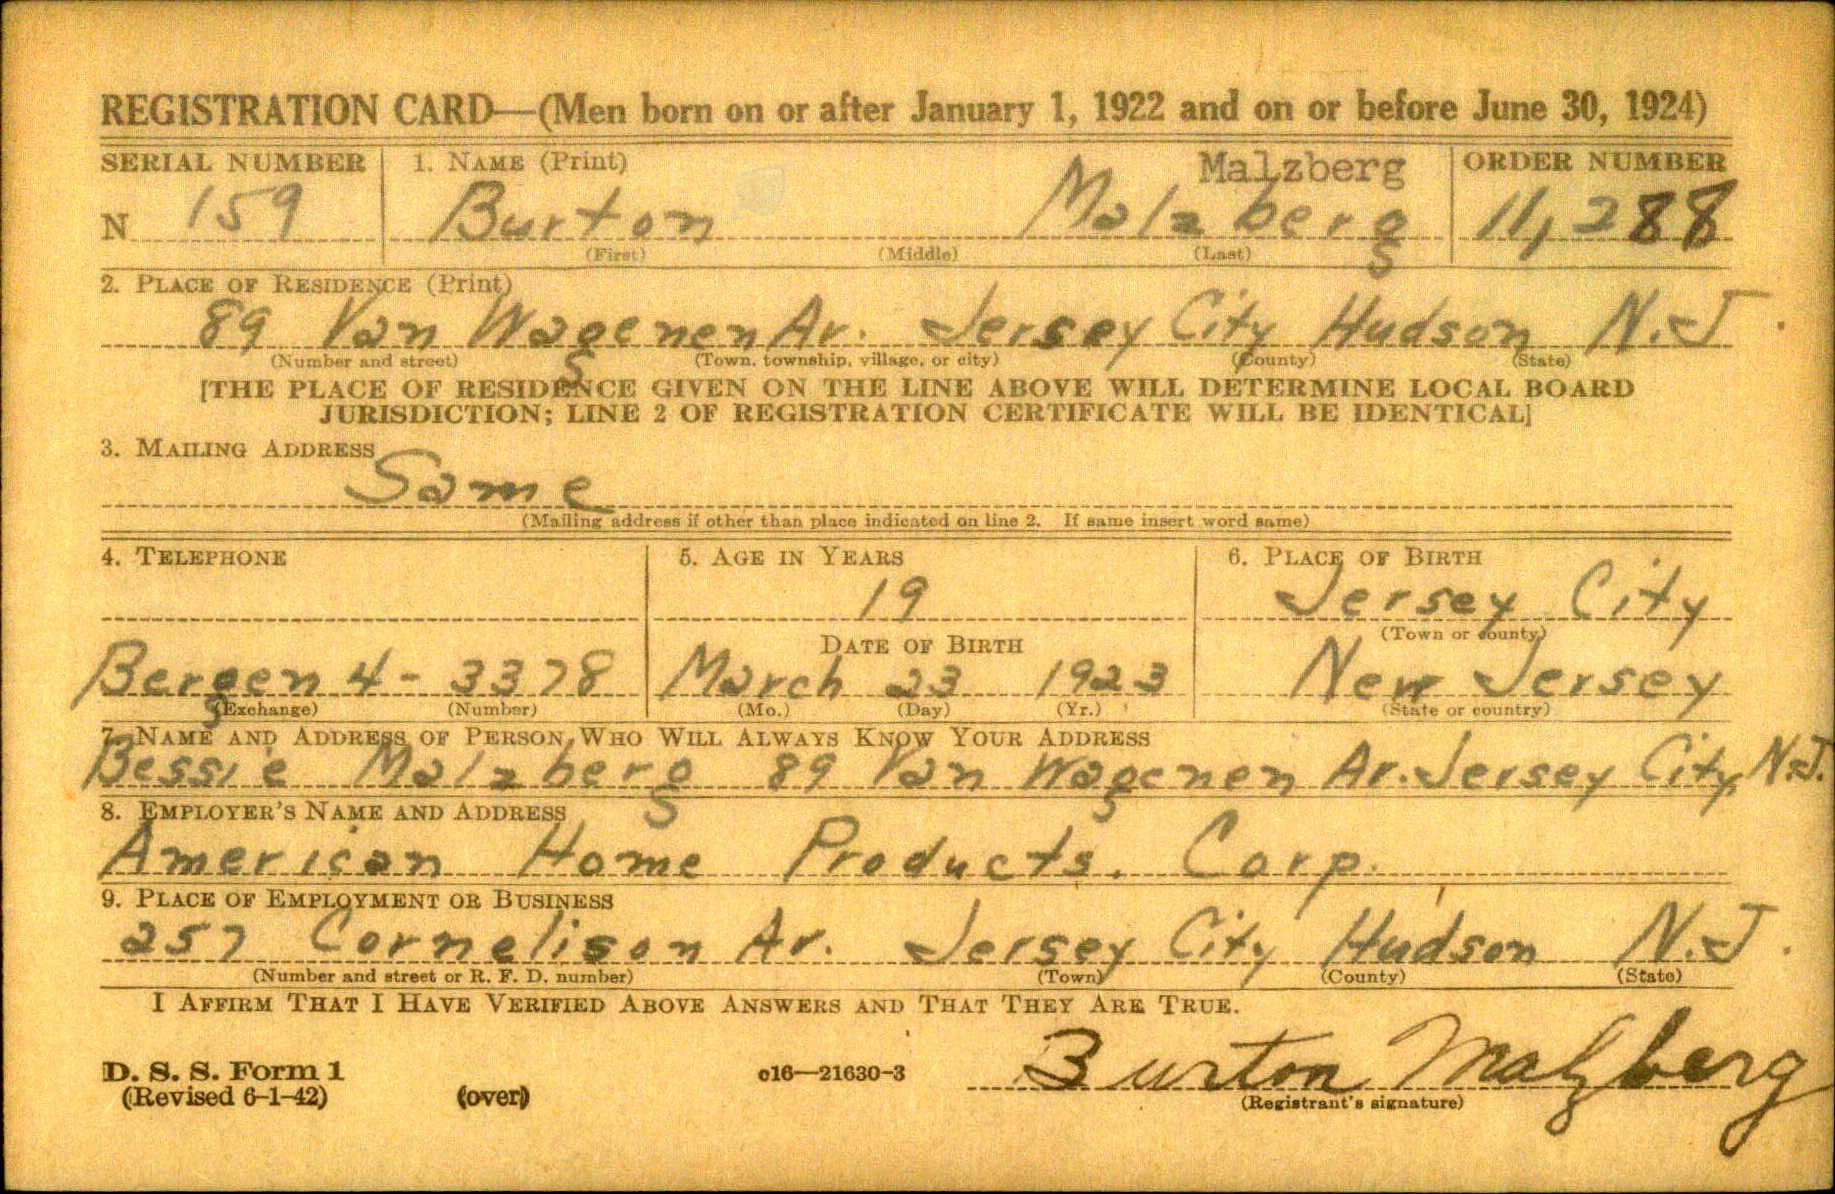 REGISTRATION CARD—(Men born on or after January 1, 1922 and on or before June 30, 1924)
SERIAL NUMBER 1. NAME (Print) Malzberg ORDER NUMBER
N 159 Burton Malzberg 11,288
(First) (Middle) (Last)
2. PLACE OF RESIDENCE (Print)
89 Van Wagenen Av. Jersey City Hudson N.J.
(Number and street) (Town, township, village, or city) (County) (State)
[THE PLACE OF RESIDENCE GIVEN ON THE LINE ABOVE WILL DETERMINE LOCAL BOARD
JURISDICTION; LINE 2 OF REGISTRATION CERTIFICATE WILL BE IDENTICAL]
3. MAILING ADDRESS
Same
(Mailing address if other than place indicated on line 2. If same insert word same)
4. TELEPHONE 5. AGE IN YEARS 6. PLACE OF BIRTH
19 Jersey City
(Town or county)
DATE OF BIRTH
Bergen 4-3378 March 23 1923 New Jersey
(Exchange) (Number) (Mo.) (Day) (Yr.) (State or country)
7. NAME AND ADDRESS OF PERSON WHO WILL ALWAYS KNOW YOUR ADDRESS
Bessie Malzberg 89 Van Wagenen Av. Jersey City, N.J.
8. EMPLOYER'S NAME AND ADDRESS
American Home Products. Corp.
9. PLACE OF EMPLOYMENT OR BUSINESS
257 Cornelison Av. Jersey City Hudson N.J.
(Number and street or R. F. D. number) (Town) (County) (State)
I AFFIRM THAT I HAVE VERIFIED ABOVE ANSWERS AND THAT THEY ARE TRUE.
D. S. S. Form 1
(Revised 6-1-42) (over) c16—21630-3 Burton Malzberg
(Registrant's signature)